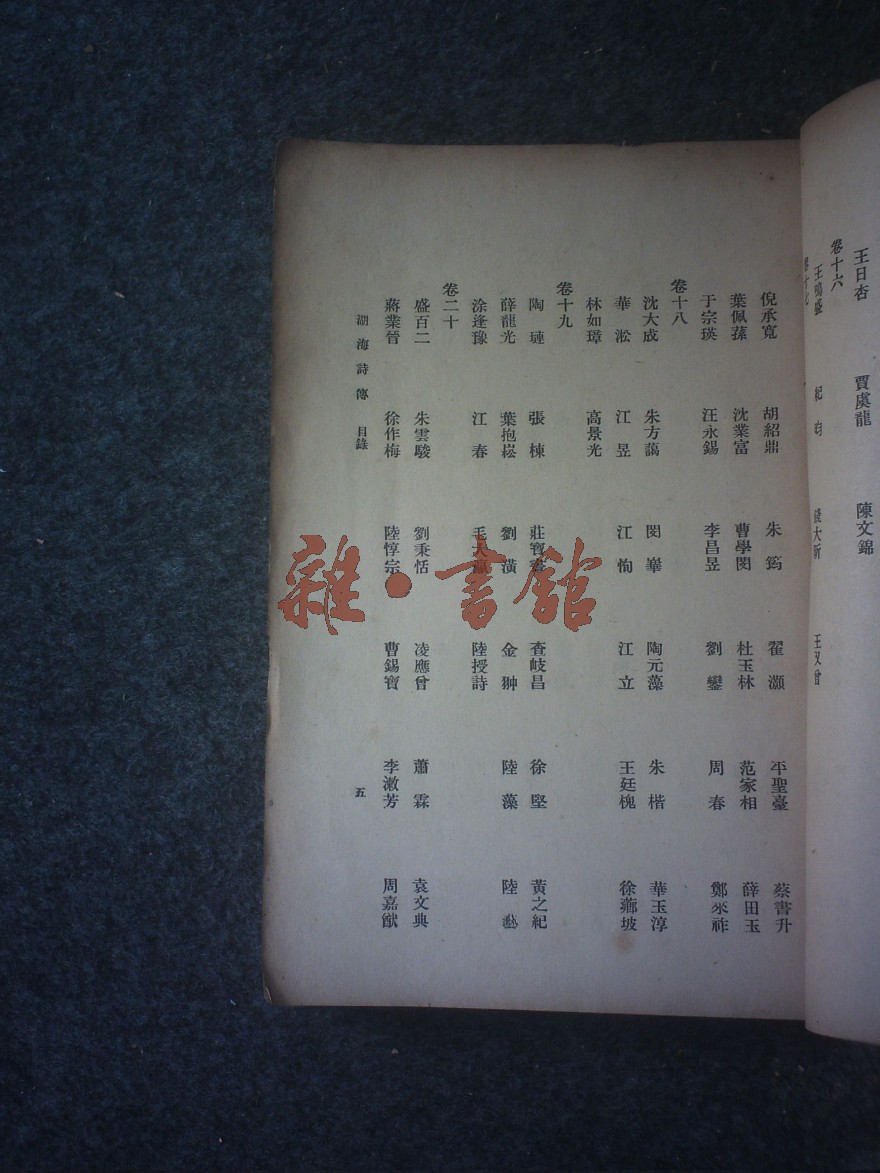 王日杏 賈虞龍 陳文錦
卷十六
王鳴盛 紀昀 錢大昕 王又曾
倪承寬 胡紹鼎 朱筠 翟灝 平聖臺 蔡書升
葉佩蓀 沈業富 曹學閔 杜玉林 范家相 薛田玉
于宗瑛 汪永錫 李昌昱 劉鑾 周春 鄭來祚
卷十八
沈大成 朱方藹 閔崋 陶元藻 朱楷 華玉淳
華淞 江昱 江恂 江立 王廷槐 徐薌坡
林如璋 高景光
卷十九
陶璉 張棟 莊寶書 查岐昌 徐堅 黃之紀
薛龍光 葉抱崧 劉潢 金翀 陸藻 陸
涂逢豫 江春 毛大瀛 陸授詩
卷二十
盛百二 朱雲駿 劉秉恬 凌應曾 蕭霖 袁文典
蔣業晉 徐作梅 陸惇宗 曹錫寶 李漱芳 周嘉猷
湖海詩傳 目錄 五
雜·書館